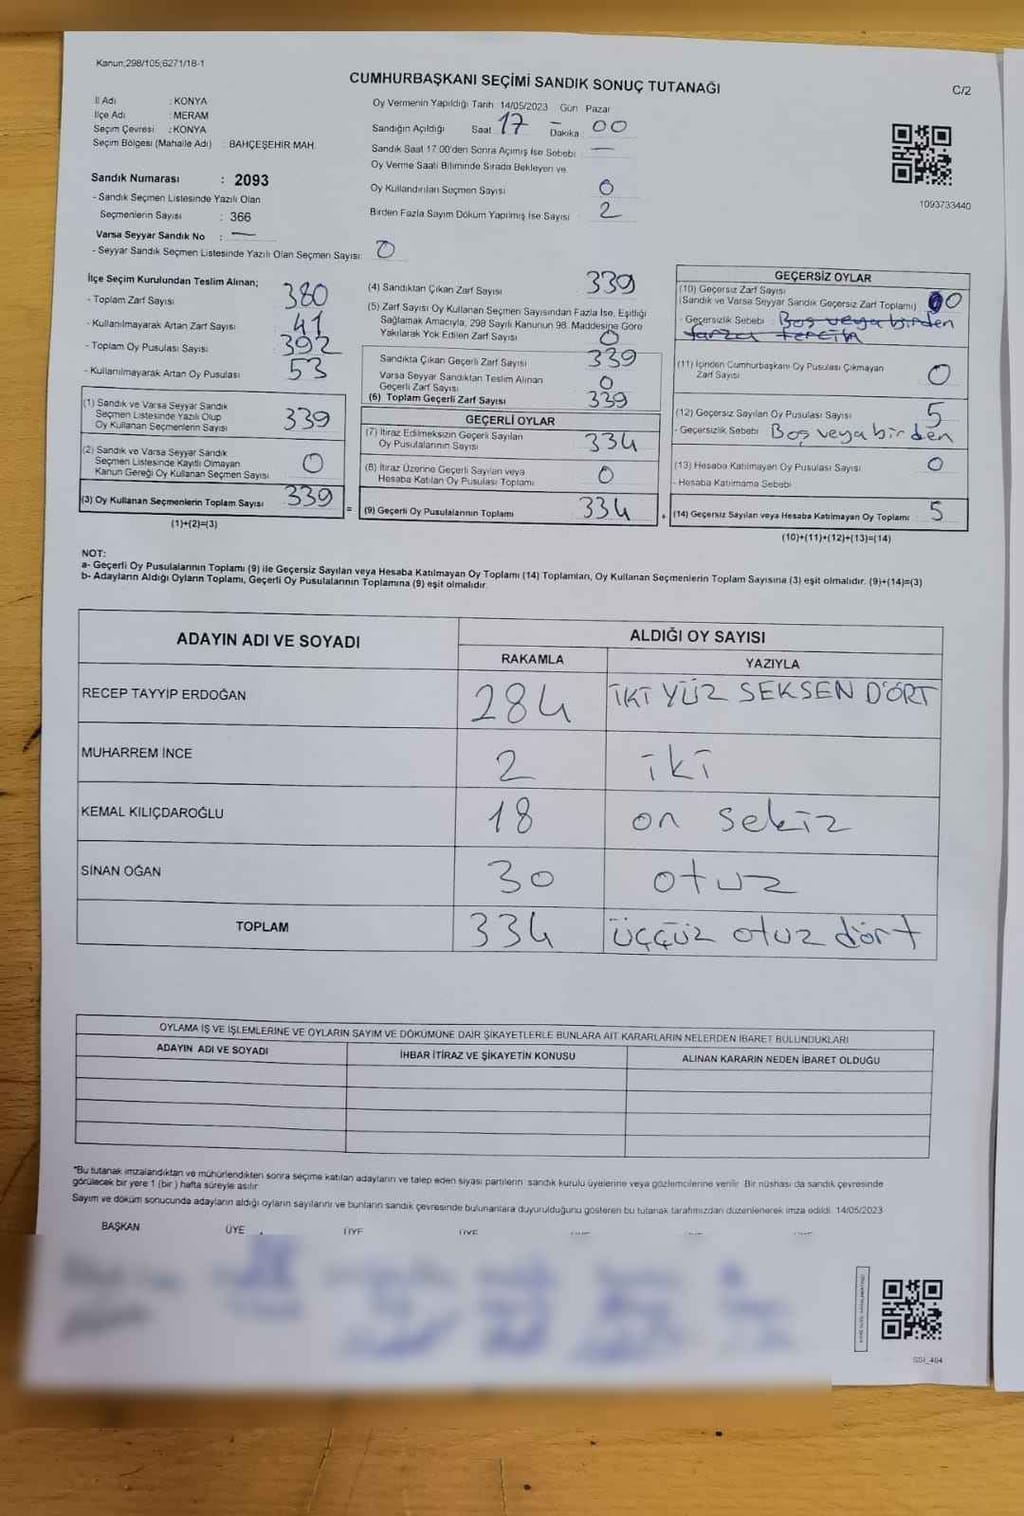 Kanun;298/105;6271/18-1
CUMHURBAŞKANI SEÇİMİ SANDIK SONUÇ TUTANAĞI
C/2
İl Adı : KONYA
İlçe Adı : MERAM
Seçim Çevresi : KONYA
Seçim Bölgesi (Mahalle Adı) : BAHÇEŞEHİR MAH.
Oy Vermenin Yapıldığı Tarih 14/05/2023 Gün Pazar
Sandığın Açıldığı Saat 17 Dakika 00
Sandık Saat 17.00'den Sonra Açımış İse Sebebi —
Oy Verme Saati Bitiminde Sırada Bekleyen ve
Oy Kullandırılan Seçmen Sayısı 0
Birden Fazla Sayım Döküm Yapılmış İse Sayısı 2
1093733440
Sandık Numarası : 2093
- Sandık Seçmen Listesinde Yazılı Olan
Seçmenlerin Sayısı : 366
Varsa Seyyar Sandık No : —
- Seyyar Sandık Seçmen Listesinde Yazılı Olan Seçmen Sayısı: 0
İlçe Seçim Kurulundan Teslim Alınan;
- Toplam Zarf Sayısı 380
- Kullanılmayarak Artan Zarf Sayısı 41
- Toplam Oy Pusulası Sayısı 392
- Kullanılmayarak Artan Oy Pusulası 53
(1) Sandık ve Varsa Seyyar Sandık
Seçmen Listesinde Yazılı Olup
Oy Kullanan Seçmenlerin Sayısı 339
(2) Sandık ve Varsa Seyyar Sandık
Seçmen Listesinde Kayıtlı Olmayan
Kanun Gereği Oy Kullanan Seçmen Sayısı 0
(3) Oy Kullanan Seçmenlerin Toplam Sayısı 339
(1)+(2)=(3)
=
(4) Sandıktan Çıkan Zarf Sayısı 339
(5) Zarf Sayısı Oy Kullanan Seçmen Sayısından Fazla İse, Eşitliği
Sağlamak Amacıyla, 298 Sayılı Kanunun 98. Maddesine Göre
Yakılarak Yok Edilen Zarf Sayısı 0
Sandıkta Çıkan Geçerli Zarf Sayısı 339
Varsa Seyyar Sandıktan Teslim Alınan
Geçerli Zarf Sayısı 0
(6) Toplam Geçerli Zarf Sayısı 339
GEÇERLİ OYLAR
(7) İtiraz Edilmeksizin Geçerli Sayılan
Oy Pusulalarının Sayısı 334
(8) İtiraz Üzerine Geçerli Sayılan veya
Hesaba Katılan Oy Pusulası Toplamı 0
(9) Geçerli Oy Pusulalarının Toplamı 334
+
GEÇERSİZ OYLAR
(10) Geçersiz Zarf Sayısı
(Sandık ve Varsa Seyyar Sandık Geçersiz Zarf Toplamı) 0
- Geçersizlik Sebebi : Boş veya birden
fazla tercih
(11) İçinden Cumhurbaşkanı Oy Pusulası Çıkmayan
Zarf Sayısı 0
(12) Geçersiz Sayılan Oy Pusulası Sayısı 5
- Geçersizlik Sebebi Boş veya birden
(13) Hesaba Katılmayan Oy Pusulası Sayısı 0
- Hesaba Katılmama Sebebi
(14) Geçersiz Sayılan veya Hesaba Katılmayan Oy Toplamı 5
(10)+(11)+(12)+(13)=(14)
NOT:
a- Geçerli Oy Pusulalarının Toplamı (9) ile Geçersiz Sayılan veya Hesaba Katılmayan Oy Toplamı (14) Toplamları, Oy Kullanan Seçmenlerin Toplam Sayısına (3) eşit olmalıdır. (9)+(14)=(3)
b- Adayların Aldığı Oyların Toplamı, Geçerli Oy Pusulalarının Toplamına (9) eşit olmalıdır.
ADAYIN ADI VE SOYADI
ALDIĞI OY SAYISI
RAKAMLA YAZIYLA
RECEP TAYYİP ERDOĞAN 284 İKİ YÜZ SEKSEN DÖRT
MUHARREM İNCE 2 iki
KEMAL KILIÇDAROĞLU 18 on sekiz
SİNAN OĞAN 30 otuz
TOPLAM 334 üççüz otuz dört
OYLAMA İŞ VE İŞLEMLERİNE VE OYLARIN SAYIM VE DÖKÜMÜNE DAİR ŞİKAYETLERLE BUNLARA AİT KARARLARIN NELERDEN İBARET BULUNDUKLARI
ADAYIN ADI VE SOYADI İHBAR İTİRAZ VE ŞİKAYETİN KONUSU ALINAN KARARIN NEDEN İBARET OLDUĞU
*Bu tutanak imzalandıktan ve mühürlendikten sonra seçime katılan adayların ve talep eden siyasi partilerin sandık kurulu üyelerine veya gözlemcilerine verilir. Bir nüshası da sandık çevresinde
görülecek bir yere 1 (bir) hafta süreyle asılır.
Sayım ve döküm sonucunda adayların aldığı oyların sayılarını ve bunların sandık çevresinde bulunanlara duyurulduğunu gösteren bu tutanak tarafımızdan düzenlenerek imza edildi. 14/05/2023
BAŞKAN ÜYE ÜYE ÜYE